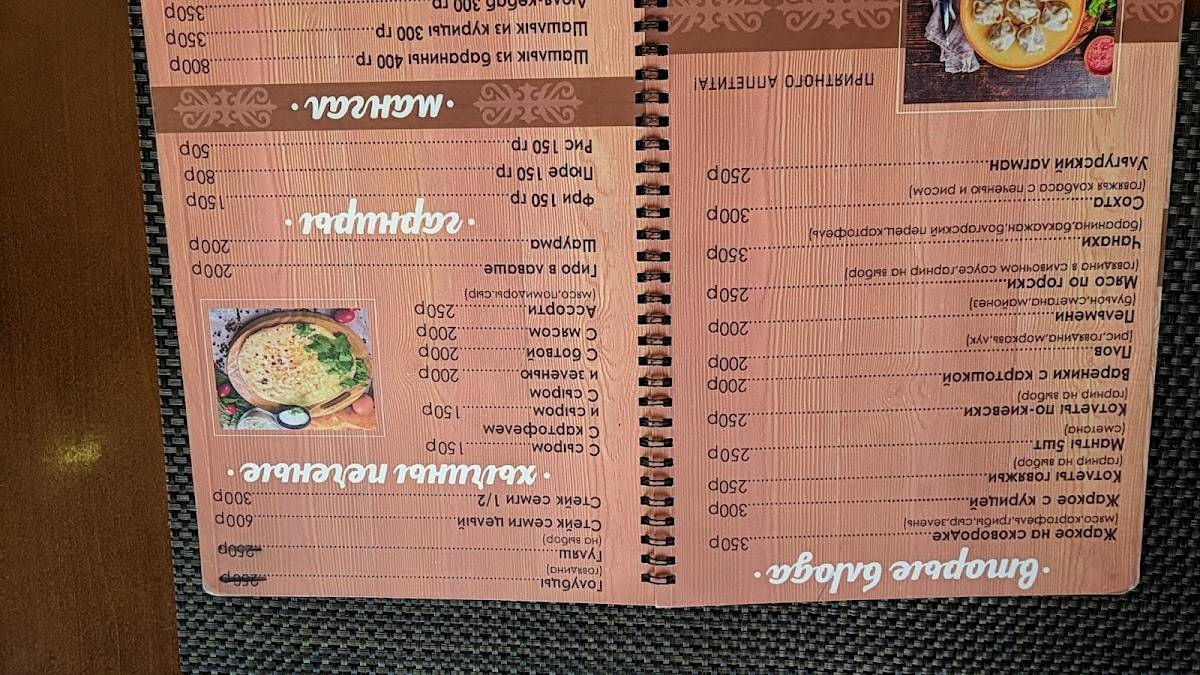 · вторые блюда ·
Жаркое на сковородке 350р
(мясо,картофель,грибы,сыр,зелень)
Жаркое с курицей 300р
Котлеты говяжьи 250р
(гарнир на выбор)
Манты 5шт 250р
(сметана)
Котлеты по-киевски 250р
(гарнир на выбор)
Вареники с картошкой 200р
Плов 200р
(рис,говядина,морковь,лук)
Пельмени 200р
(бульон,сметана,майонез)
Мясо по горски 250р
(говядина в сливочном соусе,гарнир на выбор)
Чанахи 350р
(баранина,баклажан,болгарский перец,картофель)
Сохта 300р
(говяжья колбаса с печенью и рисом)
Уйгурский лагман 250р
ПРИЯТНОГО АППЕТИТА!
Голубцы 250р
(говядина)
Гуляш 250р
(на выбор)
Стейк семги целый 600р
Стейк семги 1/2 300р
· хычины печеные ·
С сыром 150р
С картофелем
и сыром 150р
С сыром
и зеленью 200р
С ботвой 200р
С мясом 200р
Ассорти 250р
(мясо,помидоры,сыр)
Гиро в лаваше 200р
Шаурма 200р
· гарниры ·
Фри 150 гр 150р
Пюре 150 гр 80р
Рис 150 гр 50р
· мангал ·
Шашлык из баранины 400 гр 800р
Шашлык из курицы 300 гр 350р
Люля-кебаб 300 гр 350р